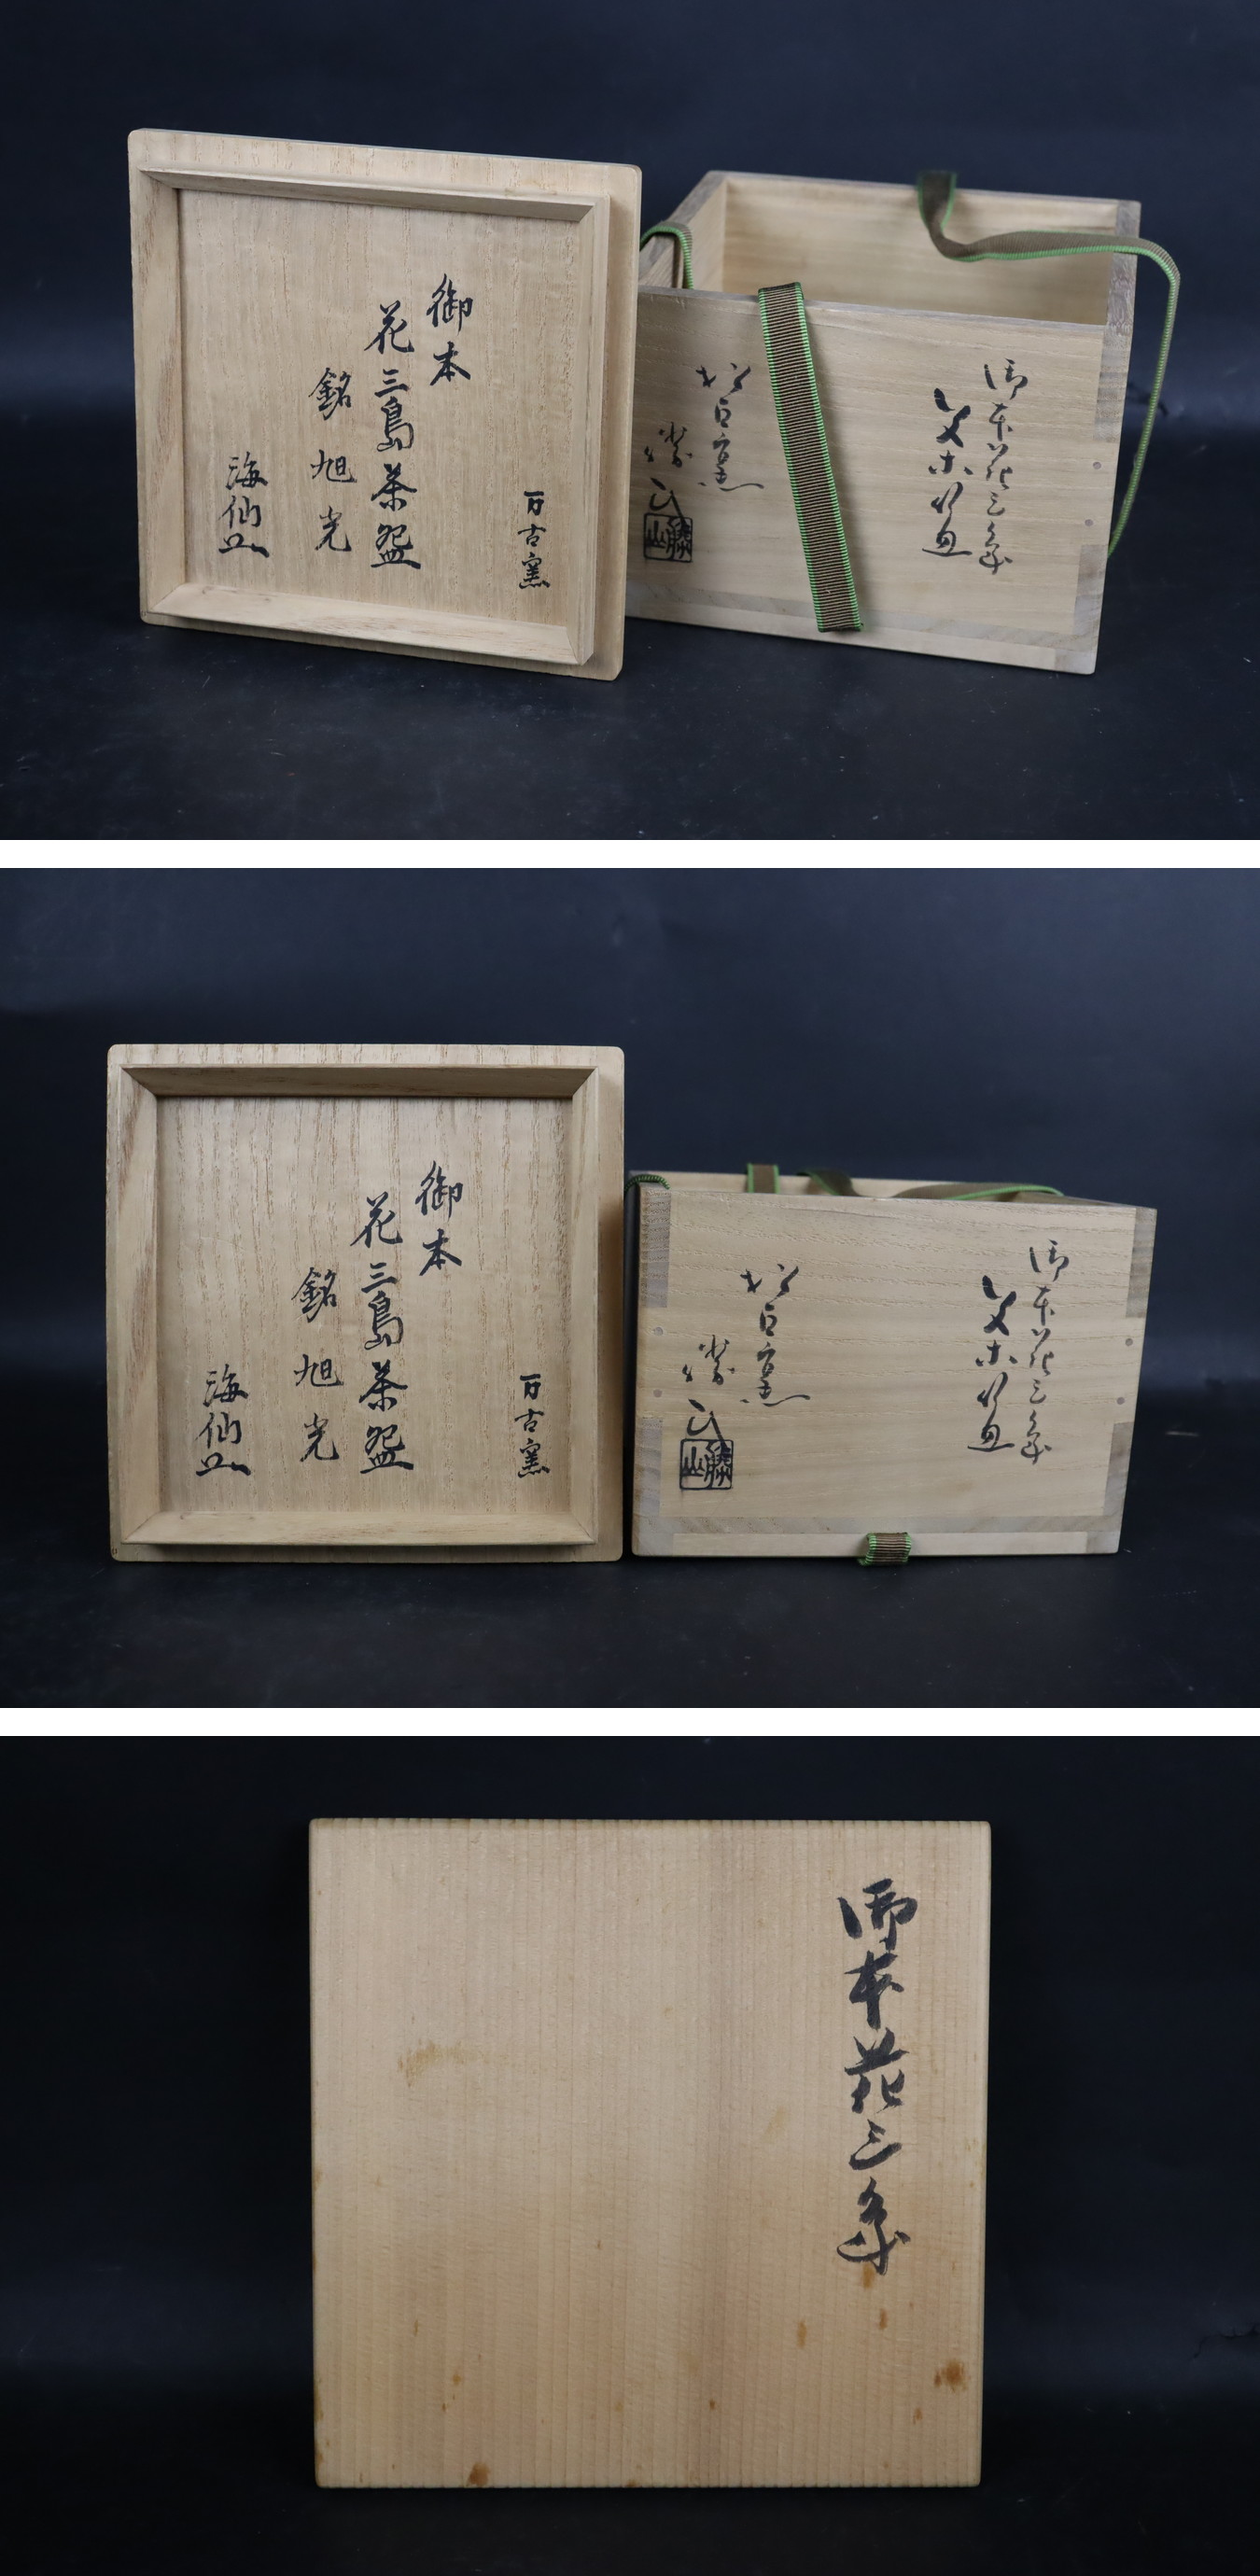 万古窯
御本
花三島茶盌
銘 旭光
海仙
御本花三島
茶碗
窯
勝山
万古窯
御本
花三島茶盌
銘 旭光
海仙
御本花三島
茶碗
窯
勝山
御本花三島